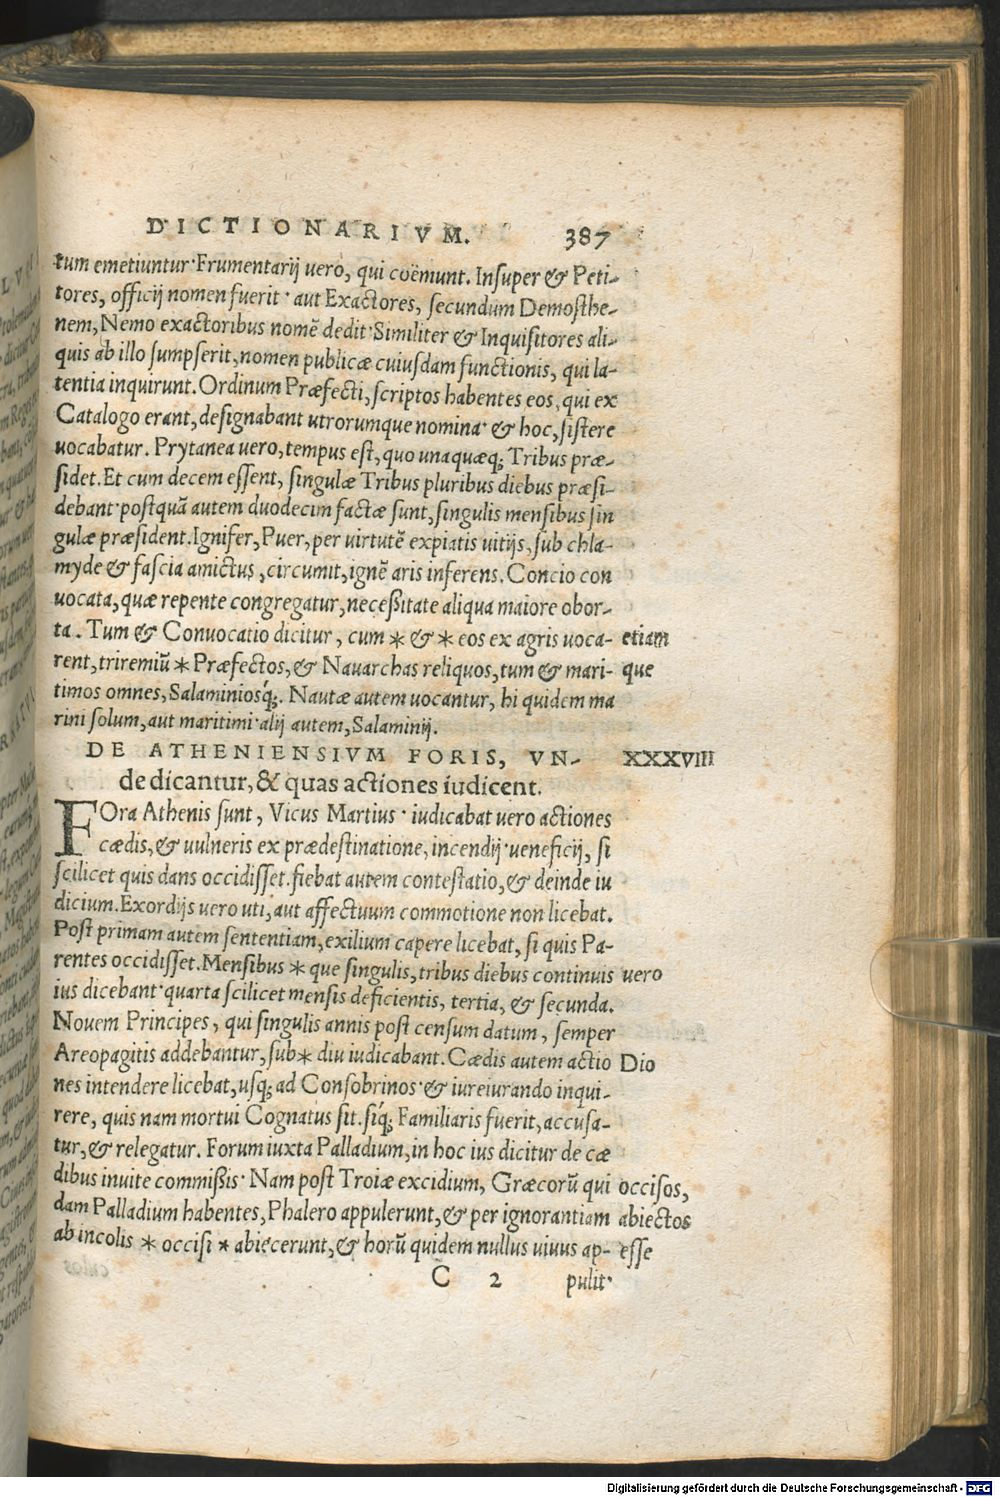 DICTIONARIVM. 387
tum emetiuntur·Frumentarij uero, qui coëmunt. Insuper & Peti-
tores, officij nomen fuerit· aut Exactores, secundum Demosthe-
nem, Nemo exactoribus nomẽ dedit·Similiter & Inquisitores ali-
quis ab illo sumpserit, nomen publicæ cuiusdam functionis, qui la-
tentia inquirunt. Ordinum Præfecti, scriptos habentes eos, qui ex
Catalogo erant, designabant utrorumque nomina· & hoc, sistere
uocabatur. Prytanea uero, tempus est, quo unaquæq; Tribus præ-
sidet. Et cum decem essent, singulæ Tribus pluribus diebus præsi-
debant·postquã autem duodecim factæ sunt, singulis mensibus sin
gulæ præsident. Ignifer, Puer, per uirtutẽ expiatis uitijs, sub chla-
myde & fascia amictus, circumit, ignẽ aris inferens. Concio con
uocata, quæ repente congregatur, necessitate aliqua maiore obor-
ta. Tum & Conuocatio dicitur, cum * & * eos ex agris uoca- etiam
rent, triremiũ * Præfectos, & Nauarchas reliquos, tum & mari- que
timos omnes, Salaminiosq́;. Nautæ autem uocantur, hi quidem ma
rini solum, aut maritimi·alij autem, Salaminij.
DE ATHENIENSIVM FORIS, VN- XXXVIII
de dicantur, & quas actiones iudicent.
FOra Athenis sunt, Vicus Martius· iudicabat uero actiones
cædis, & uulneris ex prædestinatione, incendij·ueneficij, si
scilicet quis dans occidisset. fiebat autem contestatio, & deinde iu
dicium. Exordijs uero uti, aut affectuum commotione non licebat.
Post primam autem sententiam, exilium capere licebat, si quis Pa-
rentes occidisset. Mensibus * que singulis, tribus diebus continuis uero
ius dicebant·quarta scilicet mensis deficientis, tertia, & secunda.
Nouem Principes, qui singulis annis post censum datum, semper
Areopagitis addebantur, sub* diu iudicabant. Cædis autem actio Dio
nes intendere licebat, usq; ad Consobrinos·& iureiurando inqui-
rere, quis nam mortui Cognatus sit. siq́; Familiaris fuerit, accusa-
tur, & relegatur. Forum iuxta Palladium, in hoc ius dicitur de cæ
dibus inuite commissis· Nam post Troiæ excidium, Græcorũ qui occisos,
dam Palladium habentes, Phalero appulerunt, & per ignorantiam abiectos
ab incolis * occisi * abiecerunt, & horũ quidem nullus uiuus ap- esse
C 2 pulit·
Digitalisierung gefördert durch die Deutsche Forschungsgemeinschaft - DFG